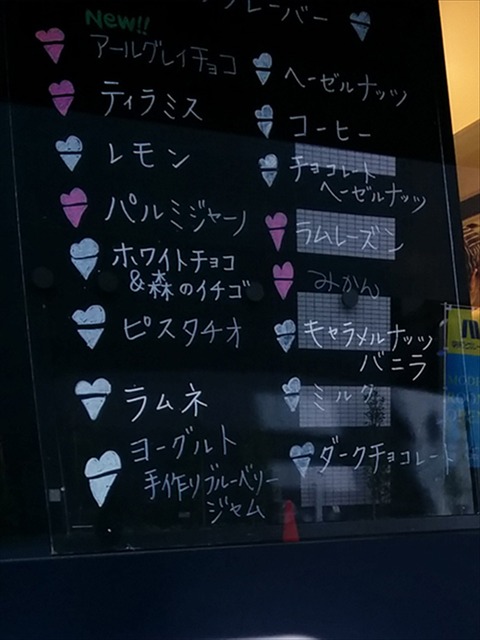 フレーバー
New!!
アールグレイチョコ
ティラミス
レモン
パルミジャーノ
ホワイトチョコ
&森のイチゴ
ピスタチオ
ラムネ
ヨーグルト
手作りブルーベリー
ジャム
ヘーゼルナッツ
コーヒー
チョコレート
ヘーゼルナッツ
ラムレーズン
みかん
キャラメルナッツ
バニラ
ミルク
ダークチョコレート